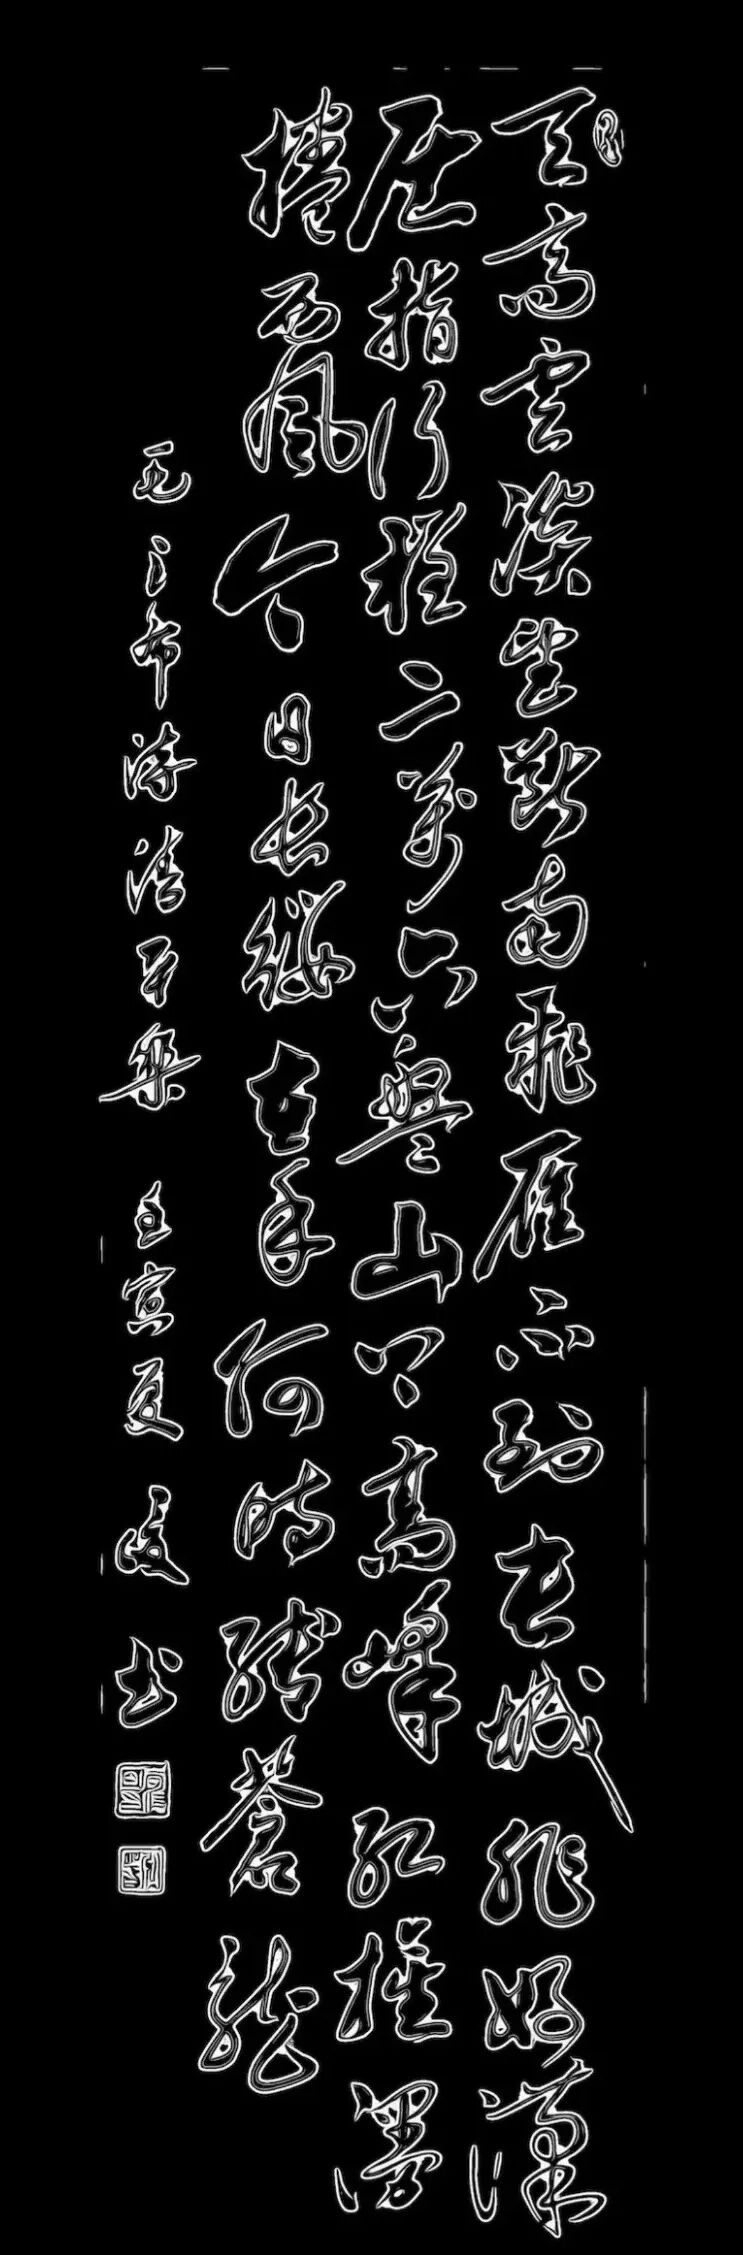 天高雲淡望斷南飛雁不到長城非好漢
屈指行程二萬六盤山上高峰紅旗漫
捲西風今日長纓在手何時縛蒼龍
毛主席詩清平樂 壬寅夏 书